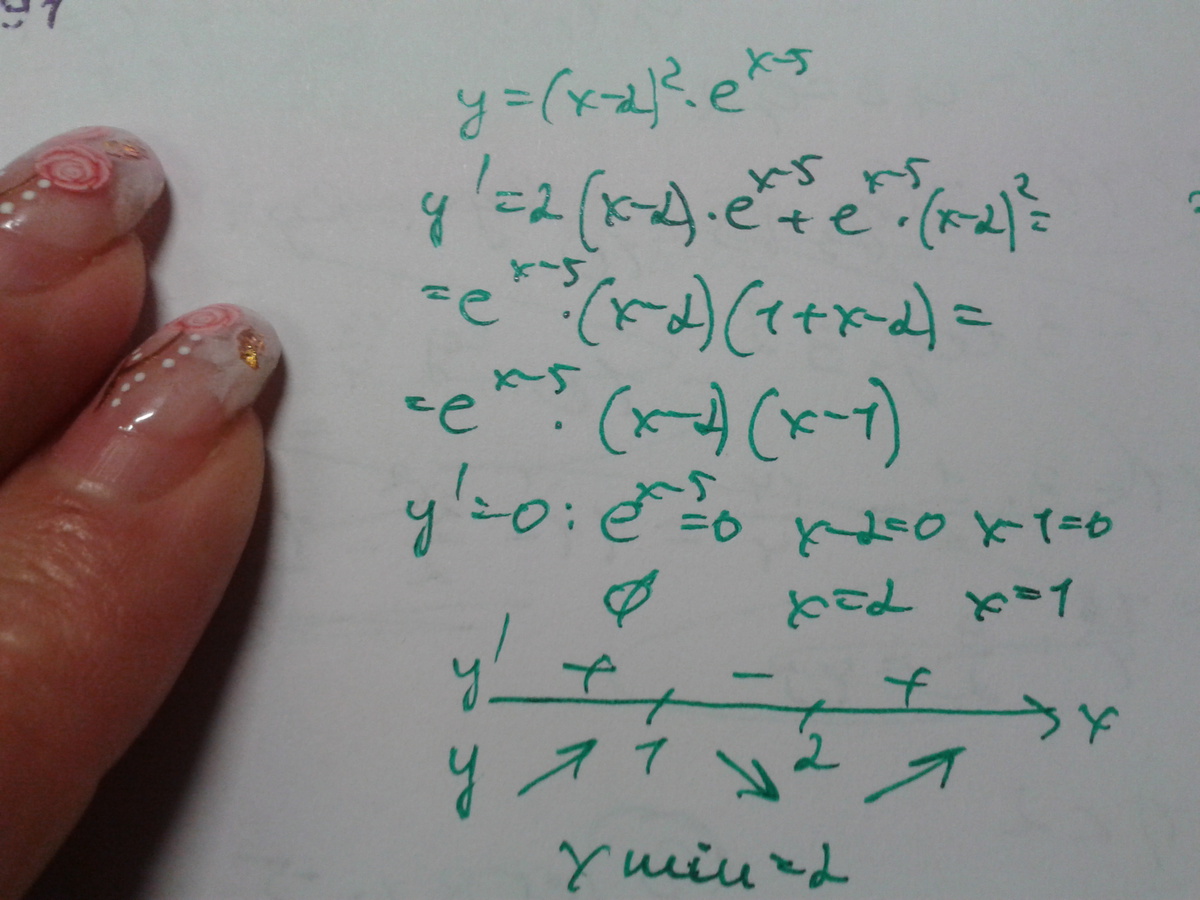 y = (x-2)²·e^(x-5)
y' = 2(x-2)·e^(x-5) + e^(x-5)·(x-2)² =
= e^(x-5)·(x-2)(1+x-2) =
= e^(x-5)·(x-2)(x-1)
y' = 0: e^(x-5) = 0 x-2=0 x-1=0
∅ x=2 x=1
y' + - + x
y ↗ 1 ↘ 2 ↗
x min = 2